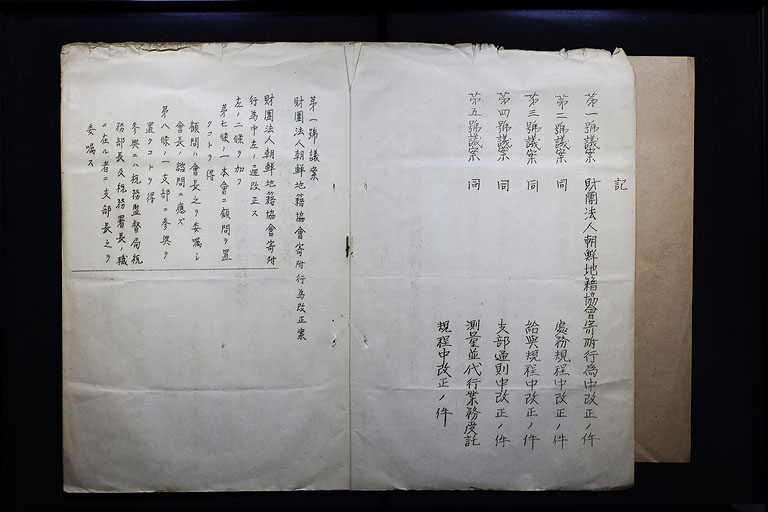 記
第一號議案 財團法人朝鮮地籍協會寄附行爲中改正ノ件
第二號議案 同 處務規程中改正ノ件
第三號議案 同 給與規程中改正ノ件
第四號議案 同 支部通則中改正ノ件
第五號議案 同 測量並代行業務受託
規程中改正ノ件
第一號議案
財團法人朝鮮地籍協會寄附行爲改正案
財團法人朝鮮地籍協會寄附
行爲中左ノ通改正ス
左ノ二條ヲ加フ
第七條ノ一 本會ニ顧問ヲ置
クコトヲ得
顧問ハ會長之ヲ委囑シ
會長ノ諮問ニ應ズ
第八條ノ一 支部ニ參與ヲ
置クコトヲ得
參與ニハ稅務監督局稅
務部長及稅務署長ノ職
ニ在ル者ニ支部長之ヲ
委囑ス